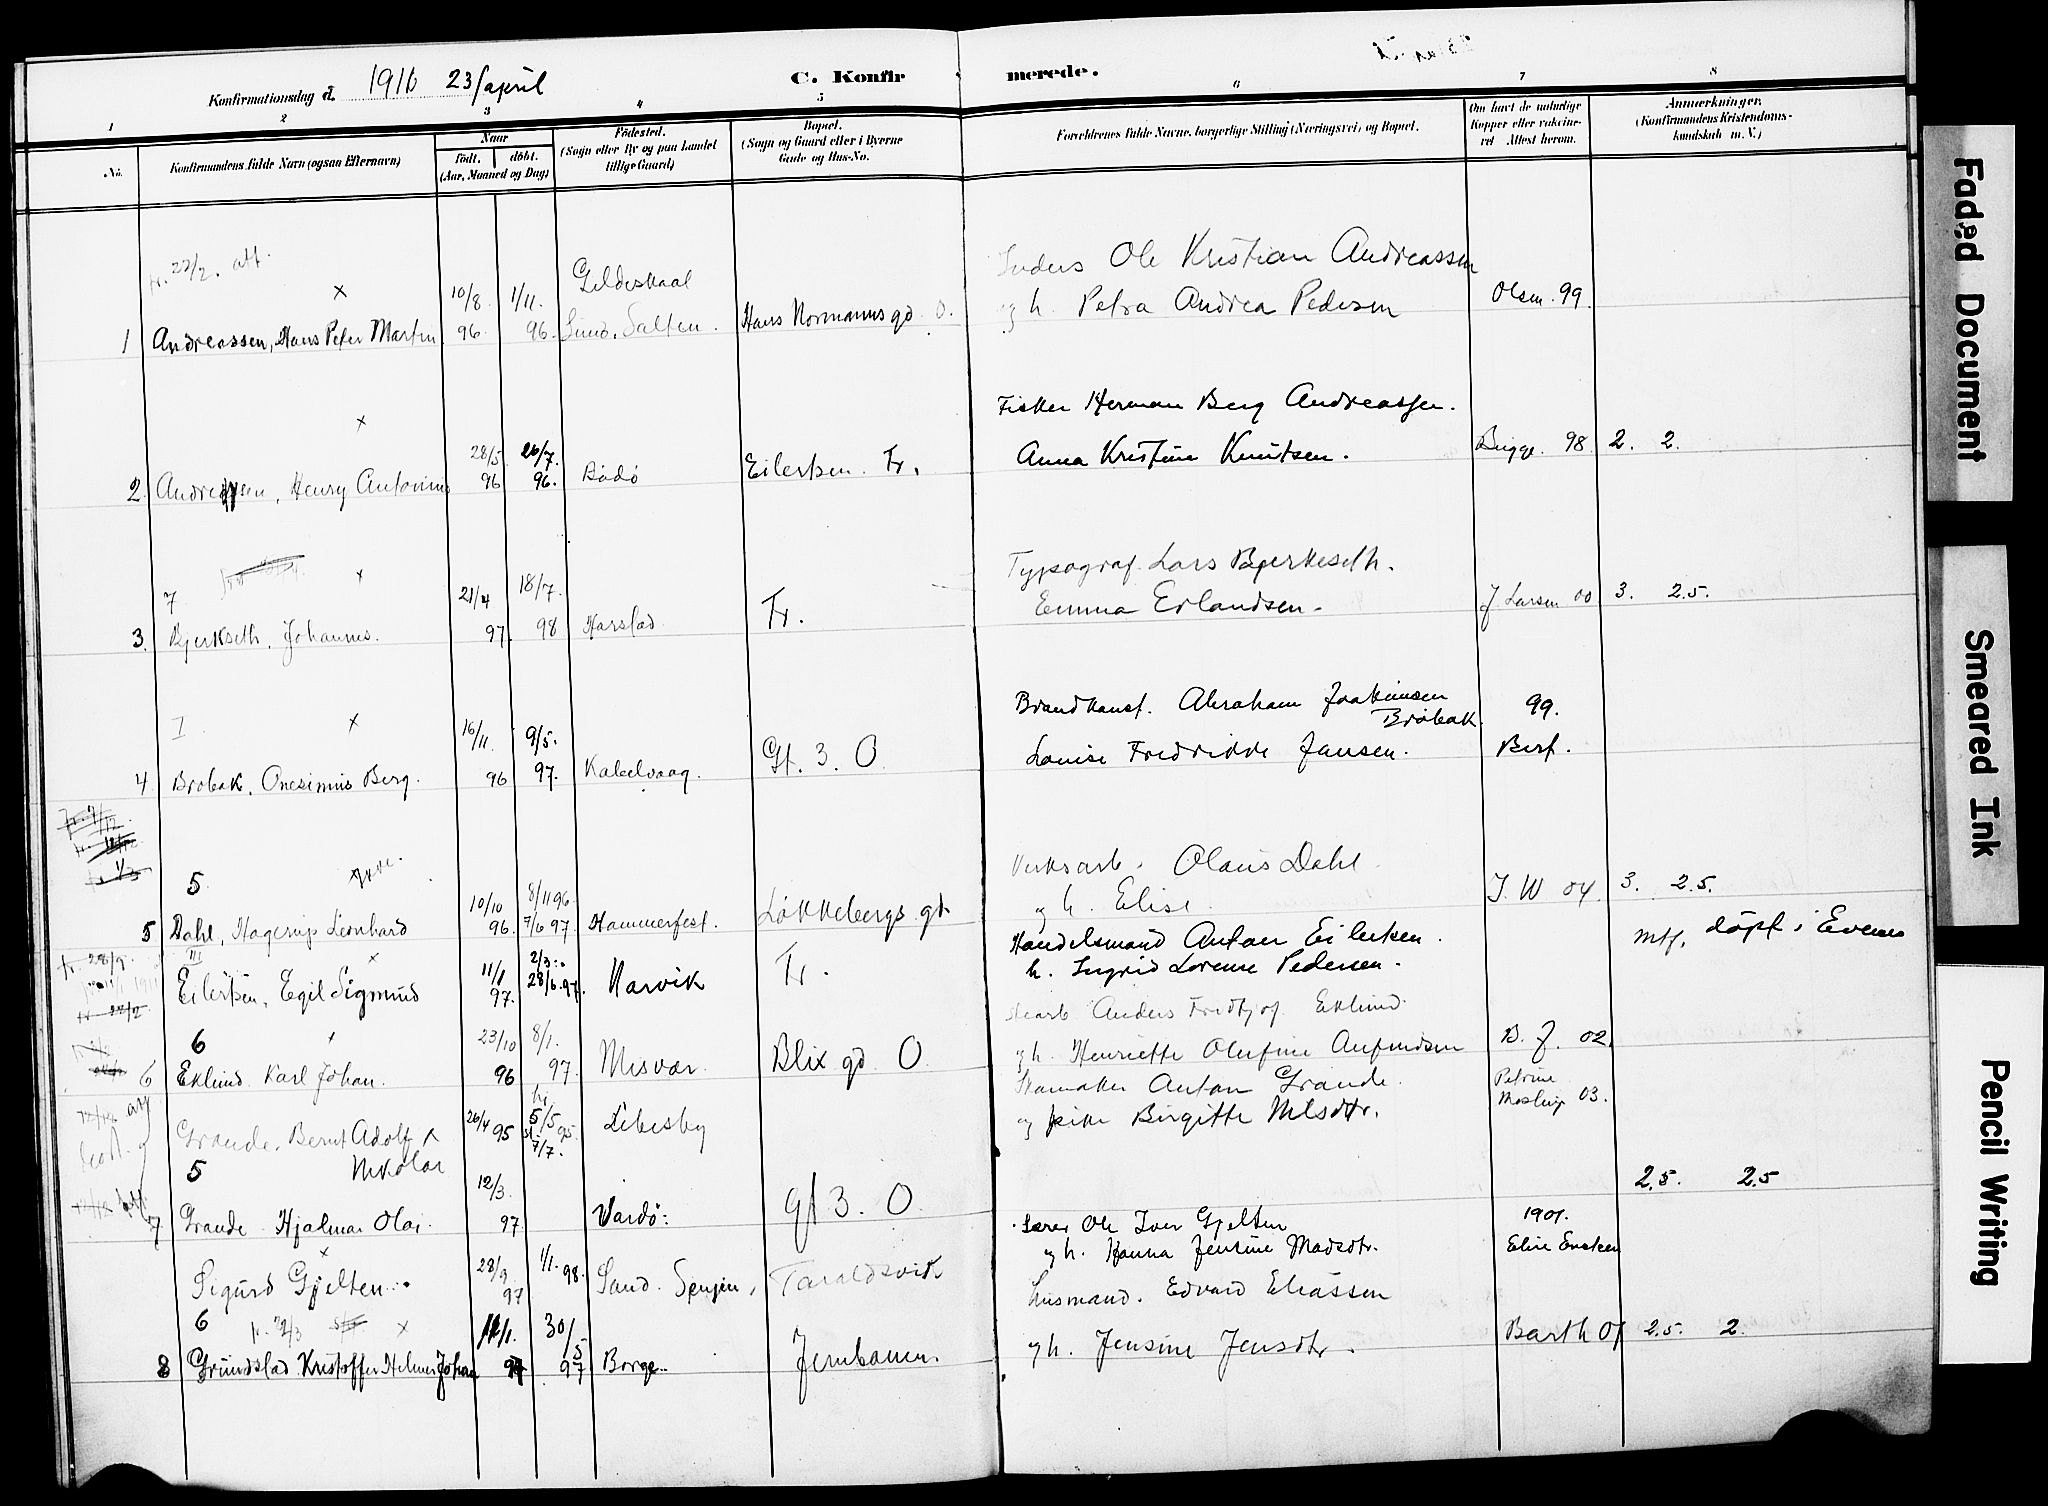 Konfirmationsdag d. 1911 23/april
C. Konfirmerede.
1 2 3 4 5 6 7 8
No.
Konfirmandens fulde Navn (ogsaa Efternavn)
Naar
födt. döbt.
(Aar, Maaned og Dag)
Födested.
(Sogn eller By og paa Landet
tillige Gaard)
Bopæl.
(Sogn og Gaard eller i Byerne
Gade og Hus-No.
Forældrenes fulde Navne, borgerlige Stilling (Næringsvei) og Bopæl.
Om havt de naturlige
Kopper eller vaccine-
ret Attest herom.
Anmærkninger.
(Konfirmandens Kristendoms-
kundskab m. V.)
22/2. att.
x 10/8. 1/11. Gildeskaal Ole Kristian Andreassen
1 Andreassen, Hans Peter Martin 96. 96. Sund, Salten. Hans Normanns gd. O. og h. Petra Andrea Pedersen Olsen. 99.
x 28/5. 26/7. Fisker Herman Berg Andreassen.
2. Andreassen, Henry Antonius 96 96. Bodø Eilertsen. Fr. Anna Kristine Knutsen. Bugge. 98 2. 2.
7 x 21/4 18/7. Typograf Lars Bjerkseth.
3. Bjerkseth, Johannes. 97. 98 Harstad Fr. Emma Erlandsen. J Larsen 00 3. 2.5.
I x 16/11. 9/5. Brandkonst. Abraham Joakimsen
Brobak.
4 Brobak, Onesimus Berg. 96 97. Kabelvaag. Gt. 3. O. Louise Fredrikke Jansen. 99.
Berf.
5 10/10 8/11 96 Verksarb. Olaus Dahl
5 Dahl, Hagerup Leonhard 96. 7/6 97. Hammerfest. Løkkebergs gd. og h. Elise J. W 04. 3. 2.5.
Tr. 28/9. III x 11/1 2/3 Handelsmand Anton Eilertsen.
Eilertsen, Egil Sigmund 97. 28/6. 97. Narvik Fr. h. Ingrid Lorense Pedersen. døpt i Evenes
6 23/10 8/1. Anders Fridtjof Eklund
6 Eklund. Karl Johan. 96 97. Misvær. Blix gd O. og h. Henriette Olufine Anfindsen B. J. 02.
Skomaker Anton Grande.
Grande, Bernt Adolf 26/4 95 5/5 95. Lebesby og pike Birgitte Nilsdtr. Petrine
03.
Nikolai 7/7.
5 12/3. 2.5. 2.5
7 Grande. Hjalmar Olai. 97. Vardø: gt 3. O.
x 28/9 1/1. 98. Ole Iver Gjelten 1901.
Sigurd Gjelten. 97 Sand. Senjen, Taraldsvik og h. Hanna Jentine Madsdtr. Elise
6 22/3 x 11/1. 30/5 Husmand. Edvard Eliassen
8 Grundstad Kristoffer Helmer Johan 97 97 Borge. Jernbanen. og h. Jensine Jensdtr. Barth 2.5. 2.
Faded Document
Smeared Ink
Pencil Writing